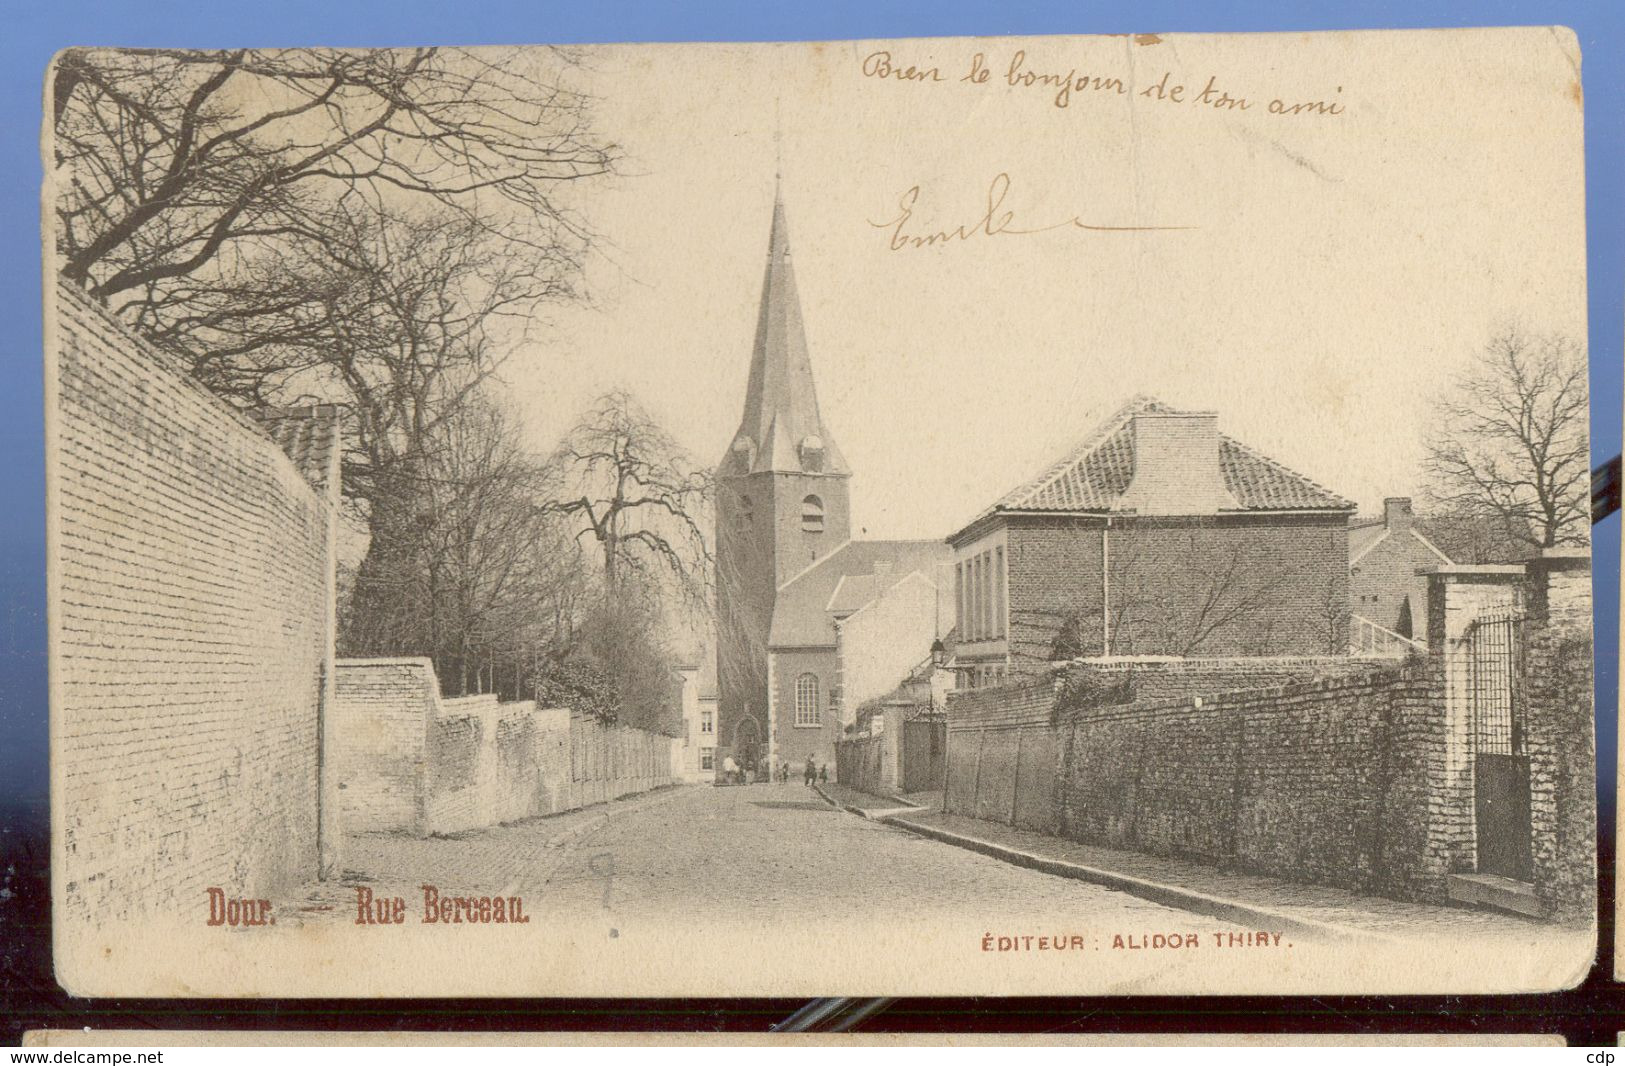 Bien le bonjour de ton ami
Emile
Dour. — Rue Berceau.
ÉDITEUR : ALIDOR THIRY.
www.delcampe.net
cdp